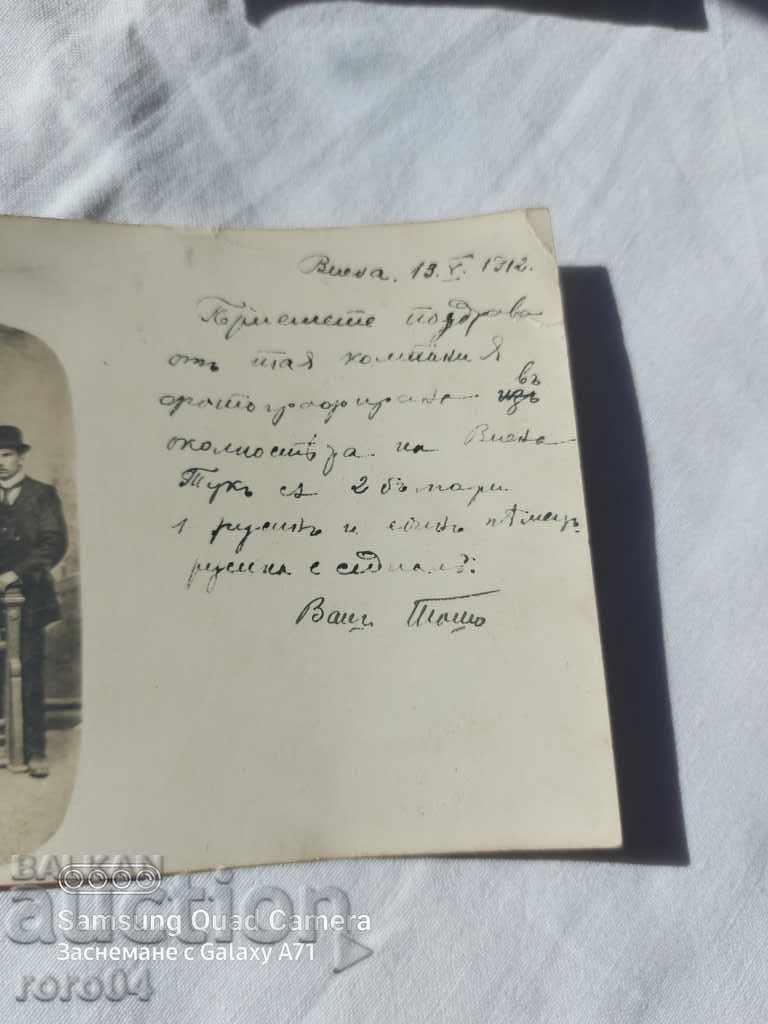 Виена. 13.V. 1912.
Приемете поздрава
отъ тая компания
фотографирана въ
околностьта на Виена
Тукъ са 2 българи
1 русинъ и единъ нѣмецъ
русина е седналъ.
Вашъ Тошо
BALKAN
auction
Samsung Quad Camera
Заснемане с Galaxy A71
roro04